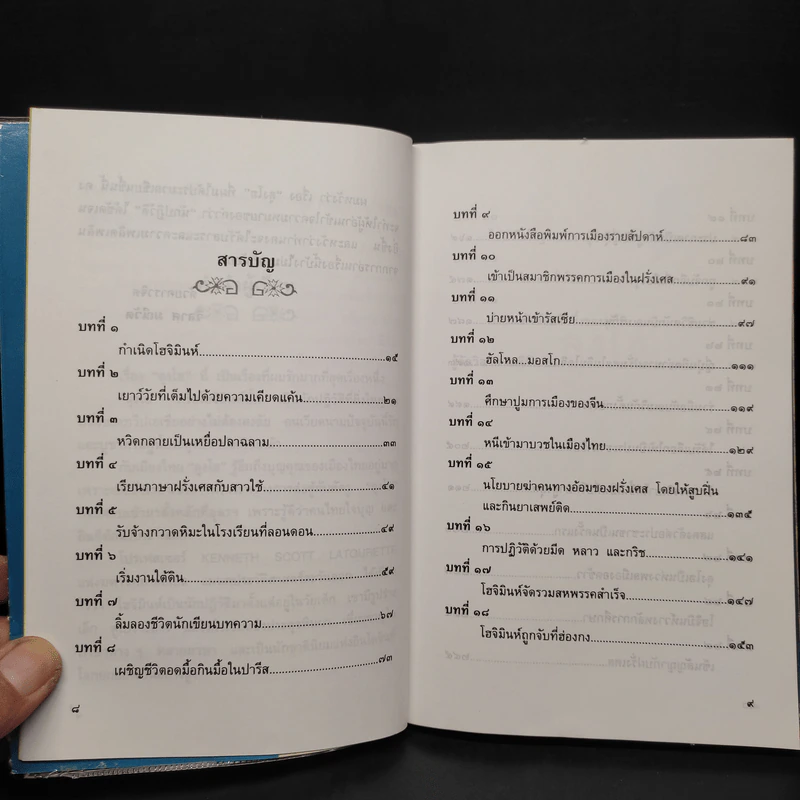 สารบัญ
บทที่ ๑
กำเนิดโฮจิมินห์...............................................๑๕
บทที่ ๒
เยาว์วัยที่เต็มไปด้วยความเคียดแค้น................๒๑
บทที่ ๓
หวิดกลายเป็นเหยื่อปลาฉลาม.........................๓๓
บทที่ ๔
เรียนภาษาฝรั่งเศสกับสาวใช้..........................๔๑
บทที่ ๕
รับจ้างกวาดหิมะในโรงเรียนที่ลอนดอน............๔๙
บทที่ ๖
เริ่มงานใต้ดิน................................................๕๙
บทที่ ๗
ลิ้มลองชีวิตนักเขียนบทความ..........................๖๗
บทที่ ๘
เผชิญชีวิตอดมื้อกินมื้อในปารีส......................๗๓
๘
บทที่ ๙
ออกหนังสือพิมพ์การเมืองรายสัปดาห์...............๘๓
บทที่ ๑๐
เข้าเป็นสมาชิกพรรคการเมืองในฝรั่งเศส...........๙๑
บทที่ ๑๑
บ่ายหน้าเข้ารัสเซีย.........................................๙๗
บทที่ ๑๒
ฮัลโหล...มอสโก...........................................๑๑๑
บทที่ ๑๓
ศึกษาปูมการเมืองของจีน...............................๑๑๙
บทที่ ๑๔
หนีเข้ามาบวชในเมืองไทย..............................๑๒๙
บทที่ ๑๕
นโยบายฆ่าคนทางอ้อมของฝรั่งเศส โดยให้สูบฝิ่น
และกินยาเสพย์ติด.........................................๑๓๕
บทที่ ๑๖
การปฏิวัติด้วยมีด หลาว และกริช....................๑๔๑
บทที่ ๑๗
โฮจิมินห์จัดรวมสหพรรคสำเร็จ.......................๑๔๗
บทที่ ๑๘
โฮจิมินห์ถูกจับที่ฮ่องกง..................................๑๕๓
๙